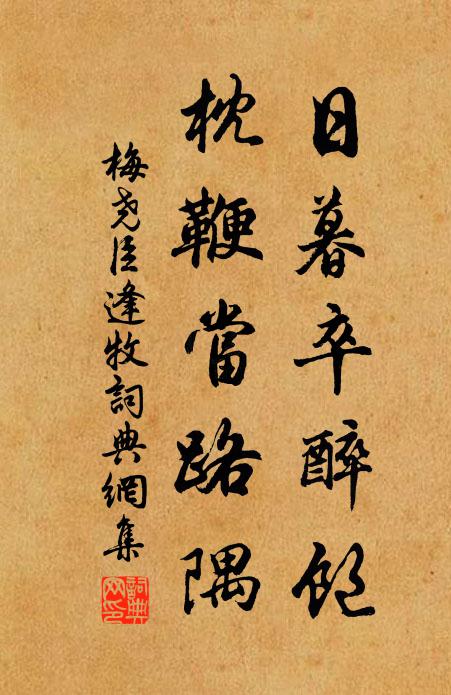 日暮卒醉飽
枕鞭當路隅
梅堯臣逢牧詞典網集
詞典網印